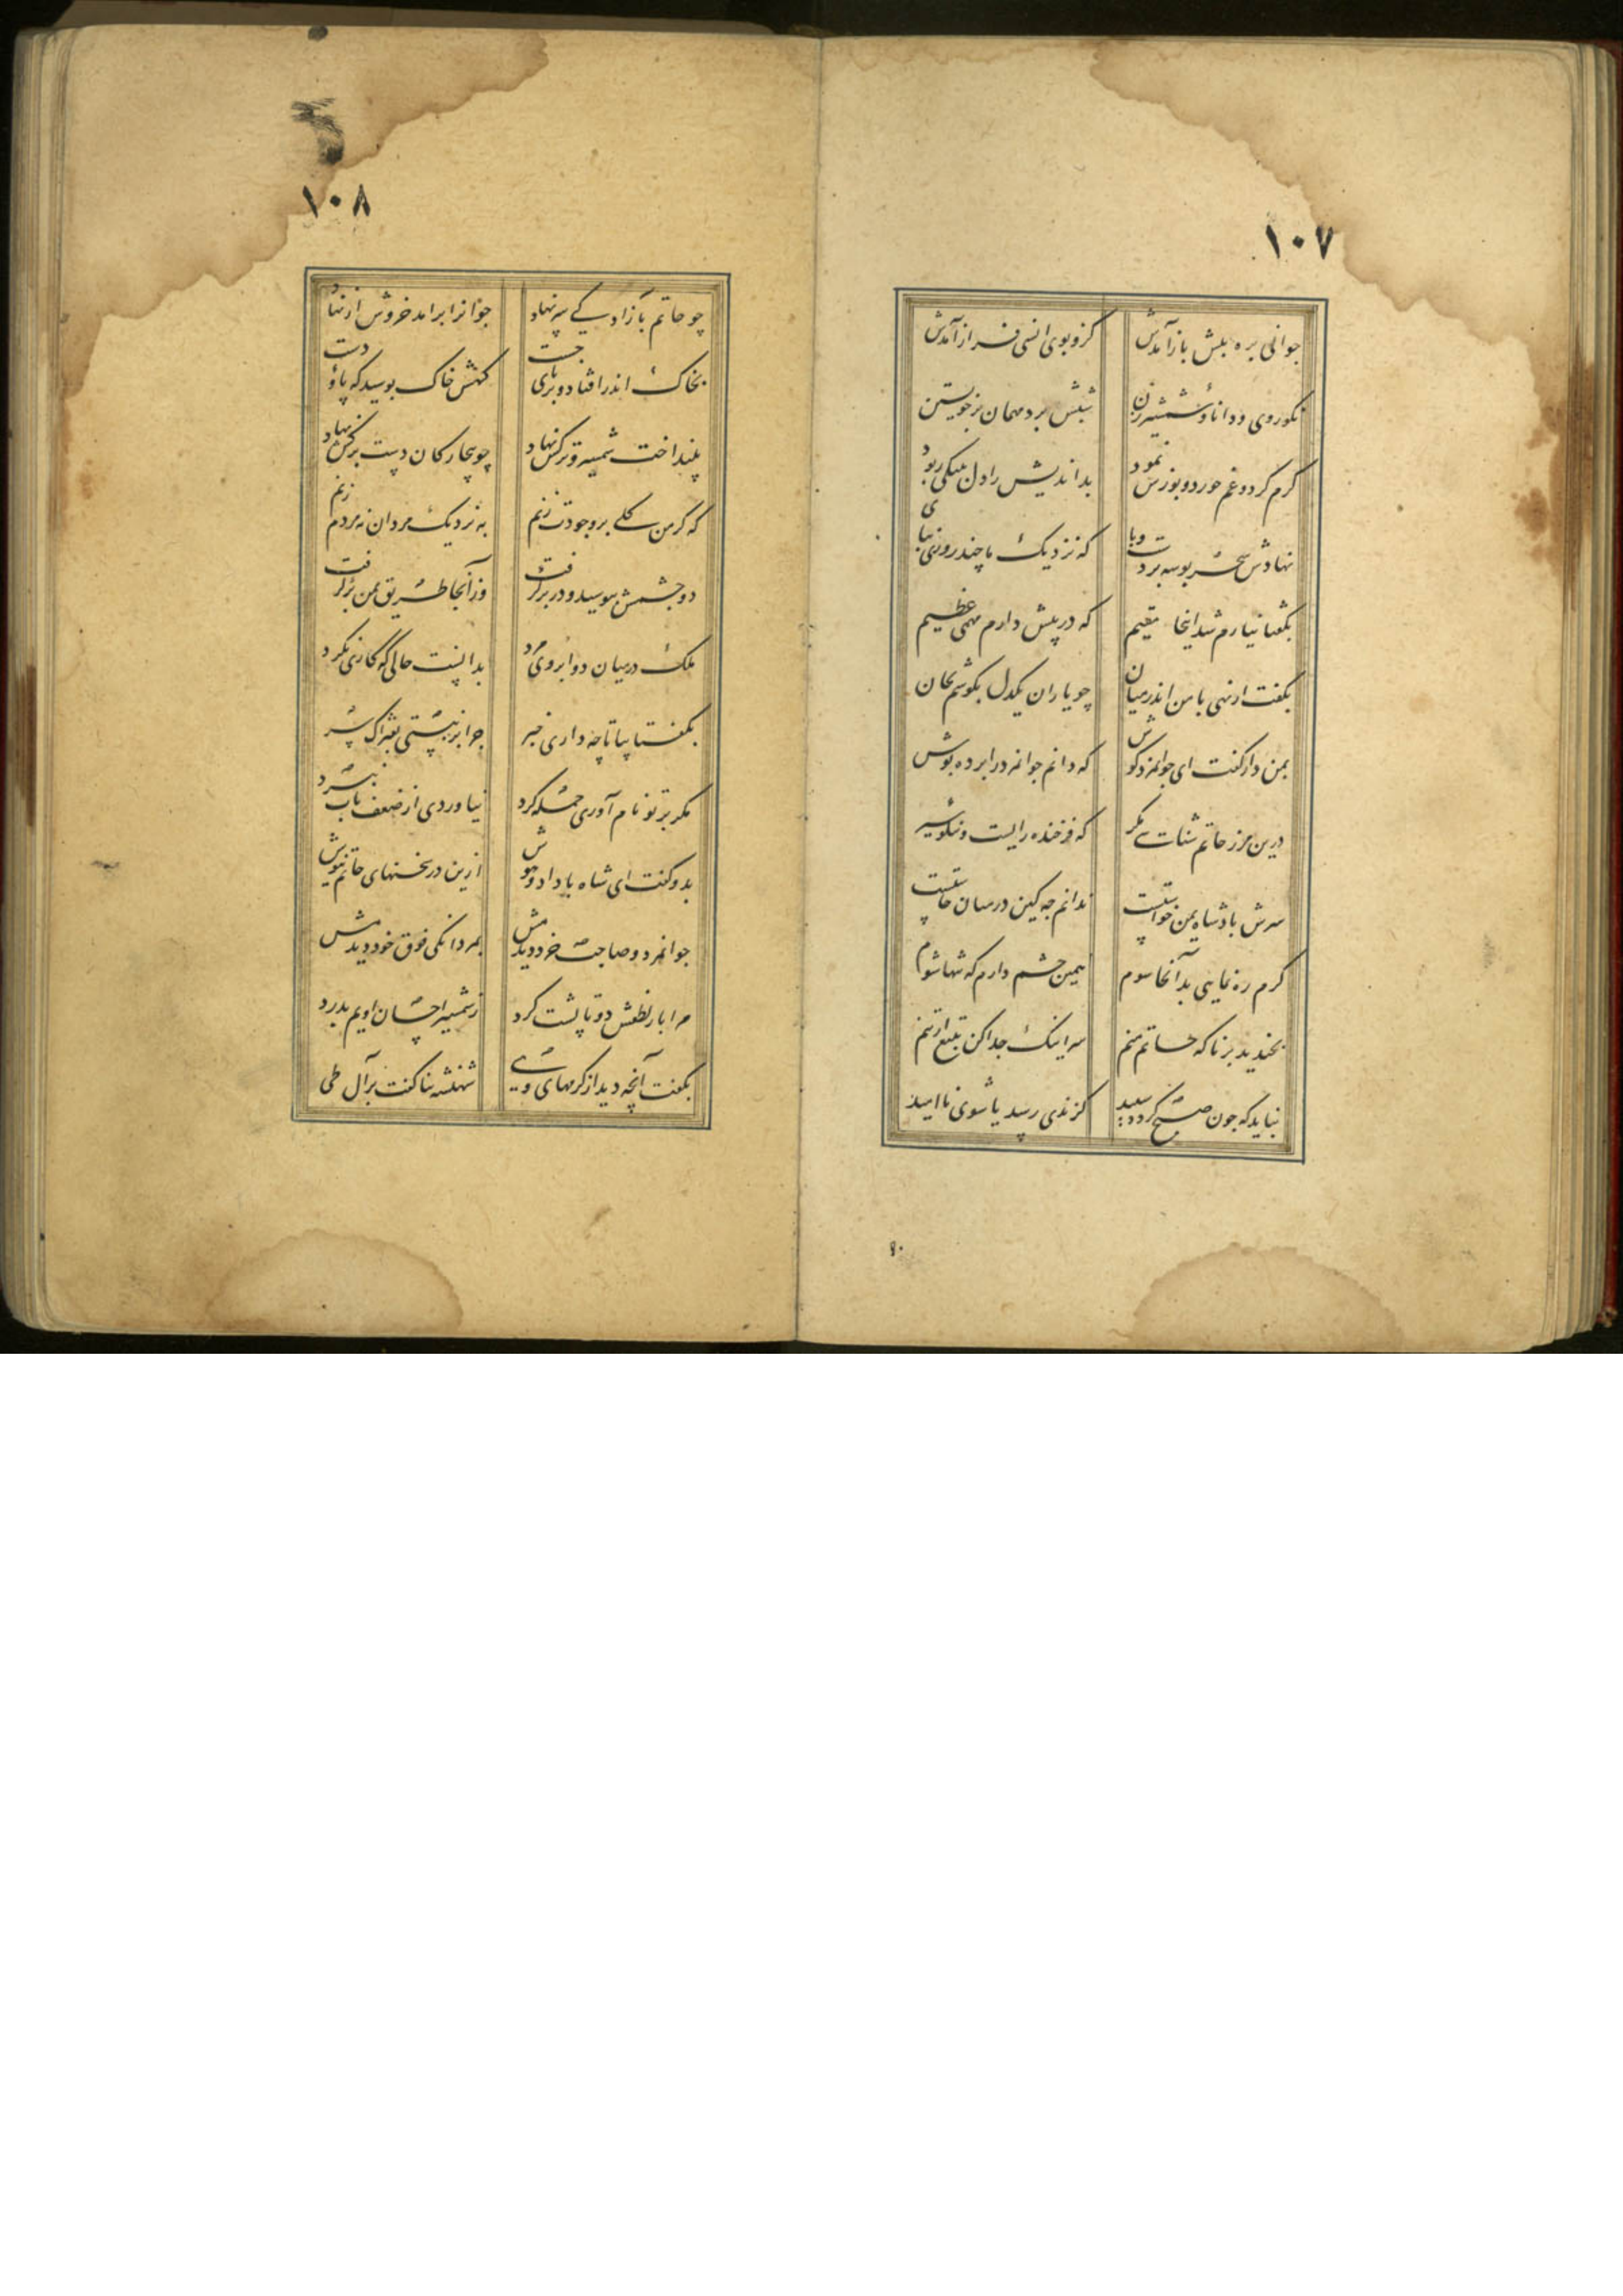 ۱۰۷
جوانی بره پیش باز آمدش
کزو بوی انسی فراز آمدش
نکوروی و دانا و شمشیرزن
شبش برد مهمان بر خویشتن
کرم کرد و غم خورد و پوزش نمود
بداندیش را دل بنیکی ربود
نهادش سحر بوسه بر دست و پا
که نزدیک ما چند روزی بپای
بگفتا نیارم شد اینجا مقیم
که در پیش دارم مهمی عظیم
بگفت ار نهی با من اندر میان
چو یاران یکدل بکوشم بجان
بمن دار گفت ای جوانمرد گوش
که دانم جوانمرد را پرده پوش
درین مرز حاتم شناسی مگر
که فرخنده رایست و نیکو سیر
سرش پادشاه یمن خواستست
ندانم چه کین در میان خاستست
گرم ره نمایی بدآنجا سوم
همین چشم دارم که تنها شوم
بخندید برنا که حاتم منم
سر اینک جدا کن بتیغ از تنم
نباید که چون صبح گردد سپید
گزندی رسد یا شوی ناامید
۹۰
۱۰۸
چو حاتم بآزادگی سر نهاد
جوانرا برامد خروش از نهاد
بخاک اندر افتاد و بر پای جست
گهش خاک بوسید گه پا و دست
بینداخت شمشیر و ترکش نهاد
چو بیچارگان دست بر کش نهاد
که گر من گلی بر وجودت زنم
به نزدیک مردان نه مردم زنم
دو چشمش ببوسید و در بر گرفت
وز آنجا طریق یمن بر گرفت
ملک در میان دو ابروی مرد
بدانست حالی که کاری نکرد
بگفتا بیا تا چه داری خبر
چرا سر نبستی بفتراک بر
مگر بر تو نام آوری حمله کرد
نیاوردی از ضعف تاب نبرد
بدو گفت ای شاه با داد و هوش
ازین در سخنهای حاتم نیوش
جوانمرد و صاحب خرد دیدمش
بمردانگی فوق خود دیدمش
مرا بار لطفش دو تا پشت کرد
ز شمشیر احسان اویم بدرد
بگفت آنچه دید از کرمهای وی
شهنشه ثنا گفت بر آل طی